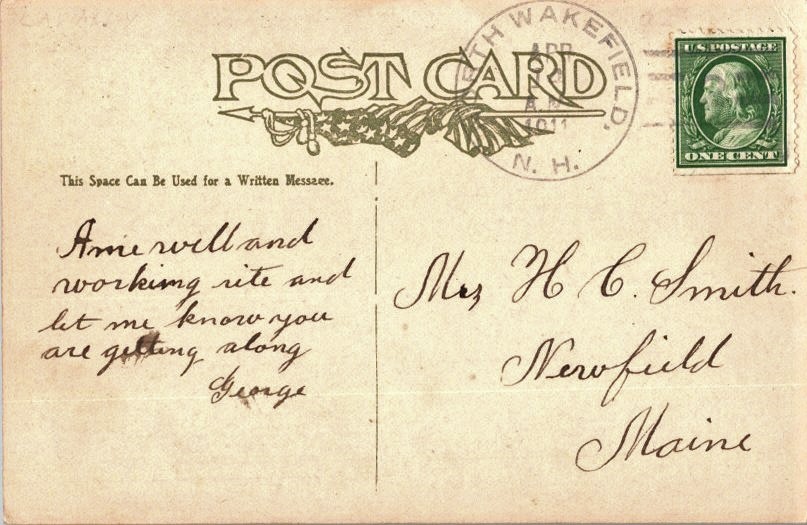 POST CARD
NORTH WAKEFIELD, N. H.
APR
A.M.
1911
U.S. POSTAGE
ONE CENT
This Space Can Be Used for a Written Message.
Ame well and
working rite and
let me know you
are getting along
George
Mrs H C. Smith.
Newfield
Maine